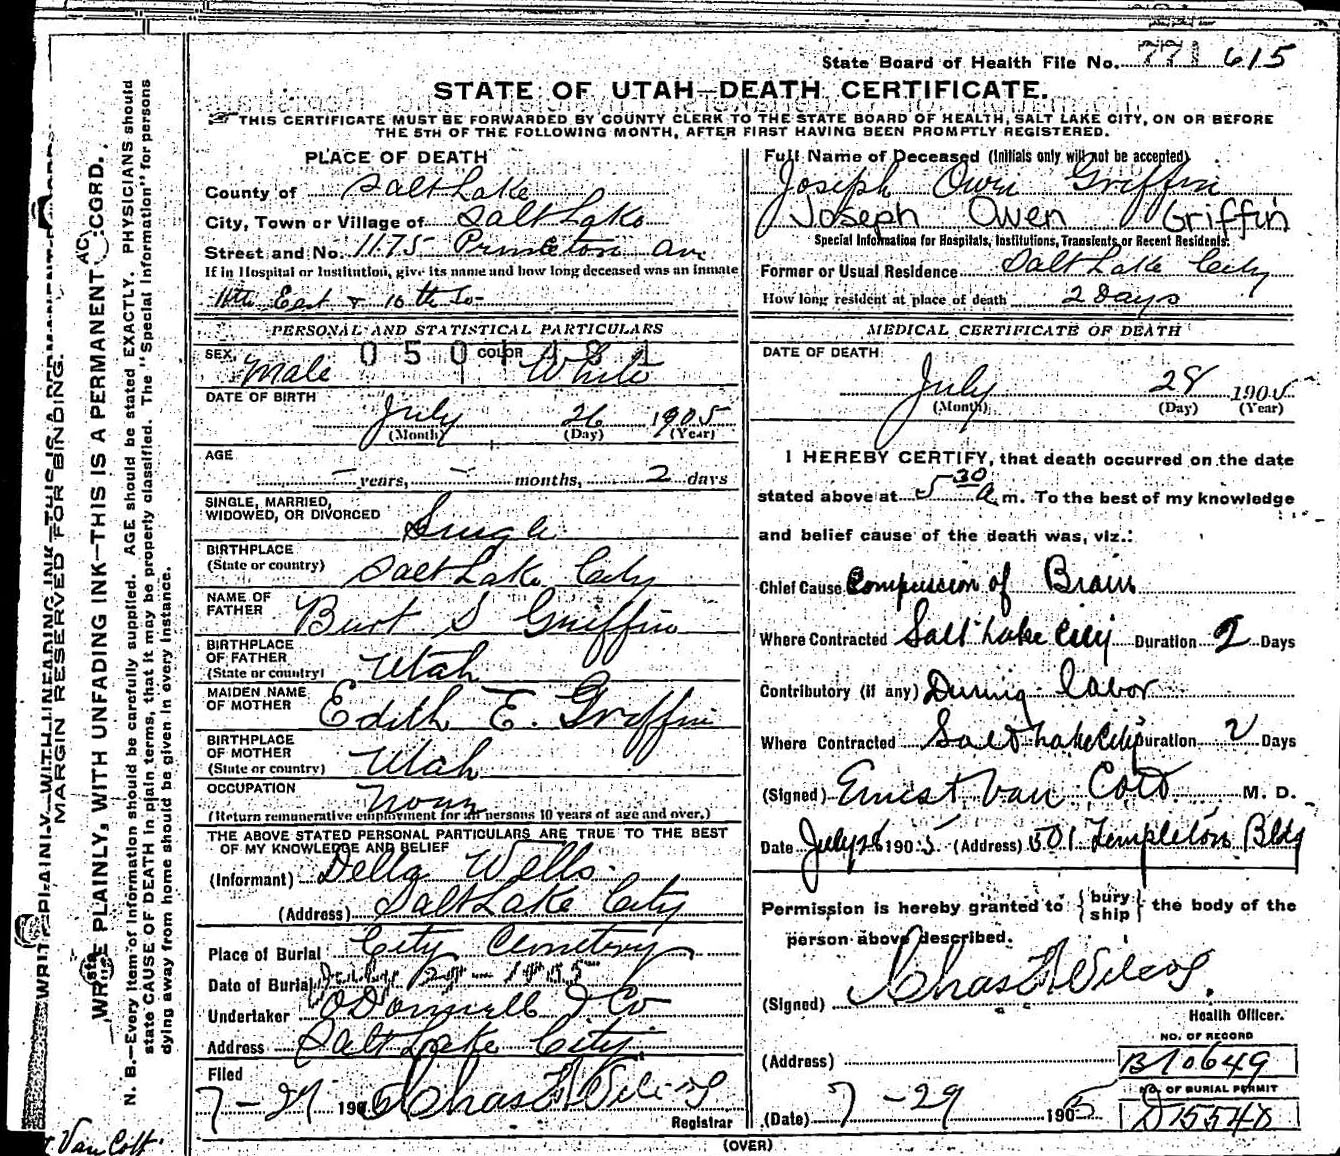 State Board of Health File No. 771 615
STATE OF UTAH—DEATH CERTIFICATE.
THIS CERTIFICATE MUST BE FORWARDED BY COUNTY CLERK TO THE STATE BOARD OF HEALTH, SALT LAKE CITY, ON OR BEFORE
THE 5TH OF THE FOLLOWING MONTH, AFTER FIRST HAVING BEEN PROMPTLY REGISTERED.
PLACE OF DEATH
County of Salt Lake
City, Town or Village of Salt Lake
Street and No. 1175 Princeton Av
If in Hospital or Institution, give its name and how long deceased was an inmate
11th East & 10th So-
PERSONAL AND STATISTICAL PARTICULARS
0501481
SEX Male COLOR White
DATE OF BIRTH
July 26 1905
(Month) (Day) (Year)
AGE
- years, - months, 2 days
SINGLE, MARRIED,
WIDOWED, OR DIVORCED Single
BIRTHPLACE
(State or country) Salt Lake City
NAME OF
FATHER Burt S Griffin
BIRTHPLACE
OF FATHER
(State or country) Utah
MAIDEN NAME
OF MOTHER Edith E. Griffin
BIRTHPLACE
OF MOTHER
(State or country) Utah
OCCUPATION None
(Return remunerative employment for all persons 10 years of age and over.)
THE ABOVE STATED PERSONAL PARTICULARS ARE TRUE TO THE BEST
OF MY KNOWLEDGE AND BELIEF
(Informant) Della Wells
(Address) Salt Lake City
Place of Burial City Cemetery
Date of Burial July 29 - 1905
Undertaker O'Donnell & Co
Address Salt Lake City
Filed
7-29 1905 Chas F Wilcox
Registrar
(OVER)
Full Name of Deceased (Initials only will not be accepted)
Joseph Owen Griffin
Joseph Owen Griffin
Special Information for Hospitals, Institutions, Transients or Recent Residents:
Former or Usual Residence Salt Lake City
How long resident at place of death 2 Days
MEDICAL CERTIFICATE OF DEATH
DATE OF DEATH
July 28 1905
(Month) (Day) (Year)
I HEREBY CERTIFY, that death occurred on the date
stated above at 5 30 a m. To the best of my knowledge
and belief cause of the death was, viz.:
Chief Cause Compression of Brain
Where Contracted Salt Lake City Duration 2 Days
Contributory (if any) During labor
Where Contracted Salt Lake City Duration 2 Days
(Signed) Ernest Van Cott M. D.
Date July 28 1905 (Address) 501 Templeton Bldg
Permission is hereby granted to {bury ship} the body of the
person above described.
(Signed) Chas F Wilcox.
Health Officer.
(Address)
NO. OF RECORD
B10649
NO. OF BURIAL PERMIT
D15548
(Date) 7-29 1905
MARGIN RESERVED FOR BINDING.
WRITE PLAINLY, WITH UNFADING INK—THIS IS A PERMANENT RECORD.
N. B.—Every item of information should be carefully supplied. AGE should be stated EXACTLY. PHYSICIANS should
state CAUSE OF DEATH in plain terms, that it may be properly classified. The "Special Information" for persons
dying away from home should be given in every instance.
Van Cott